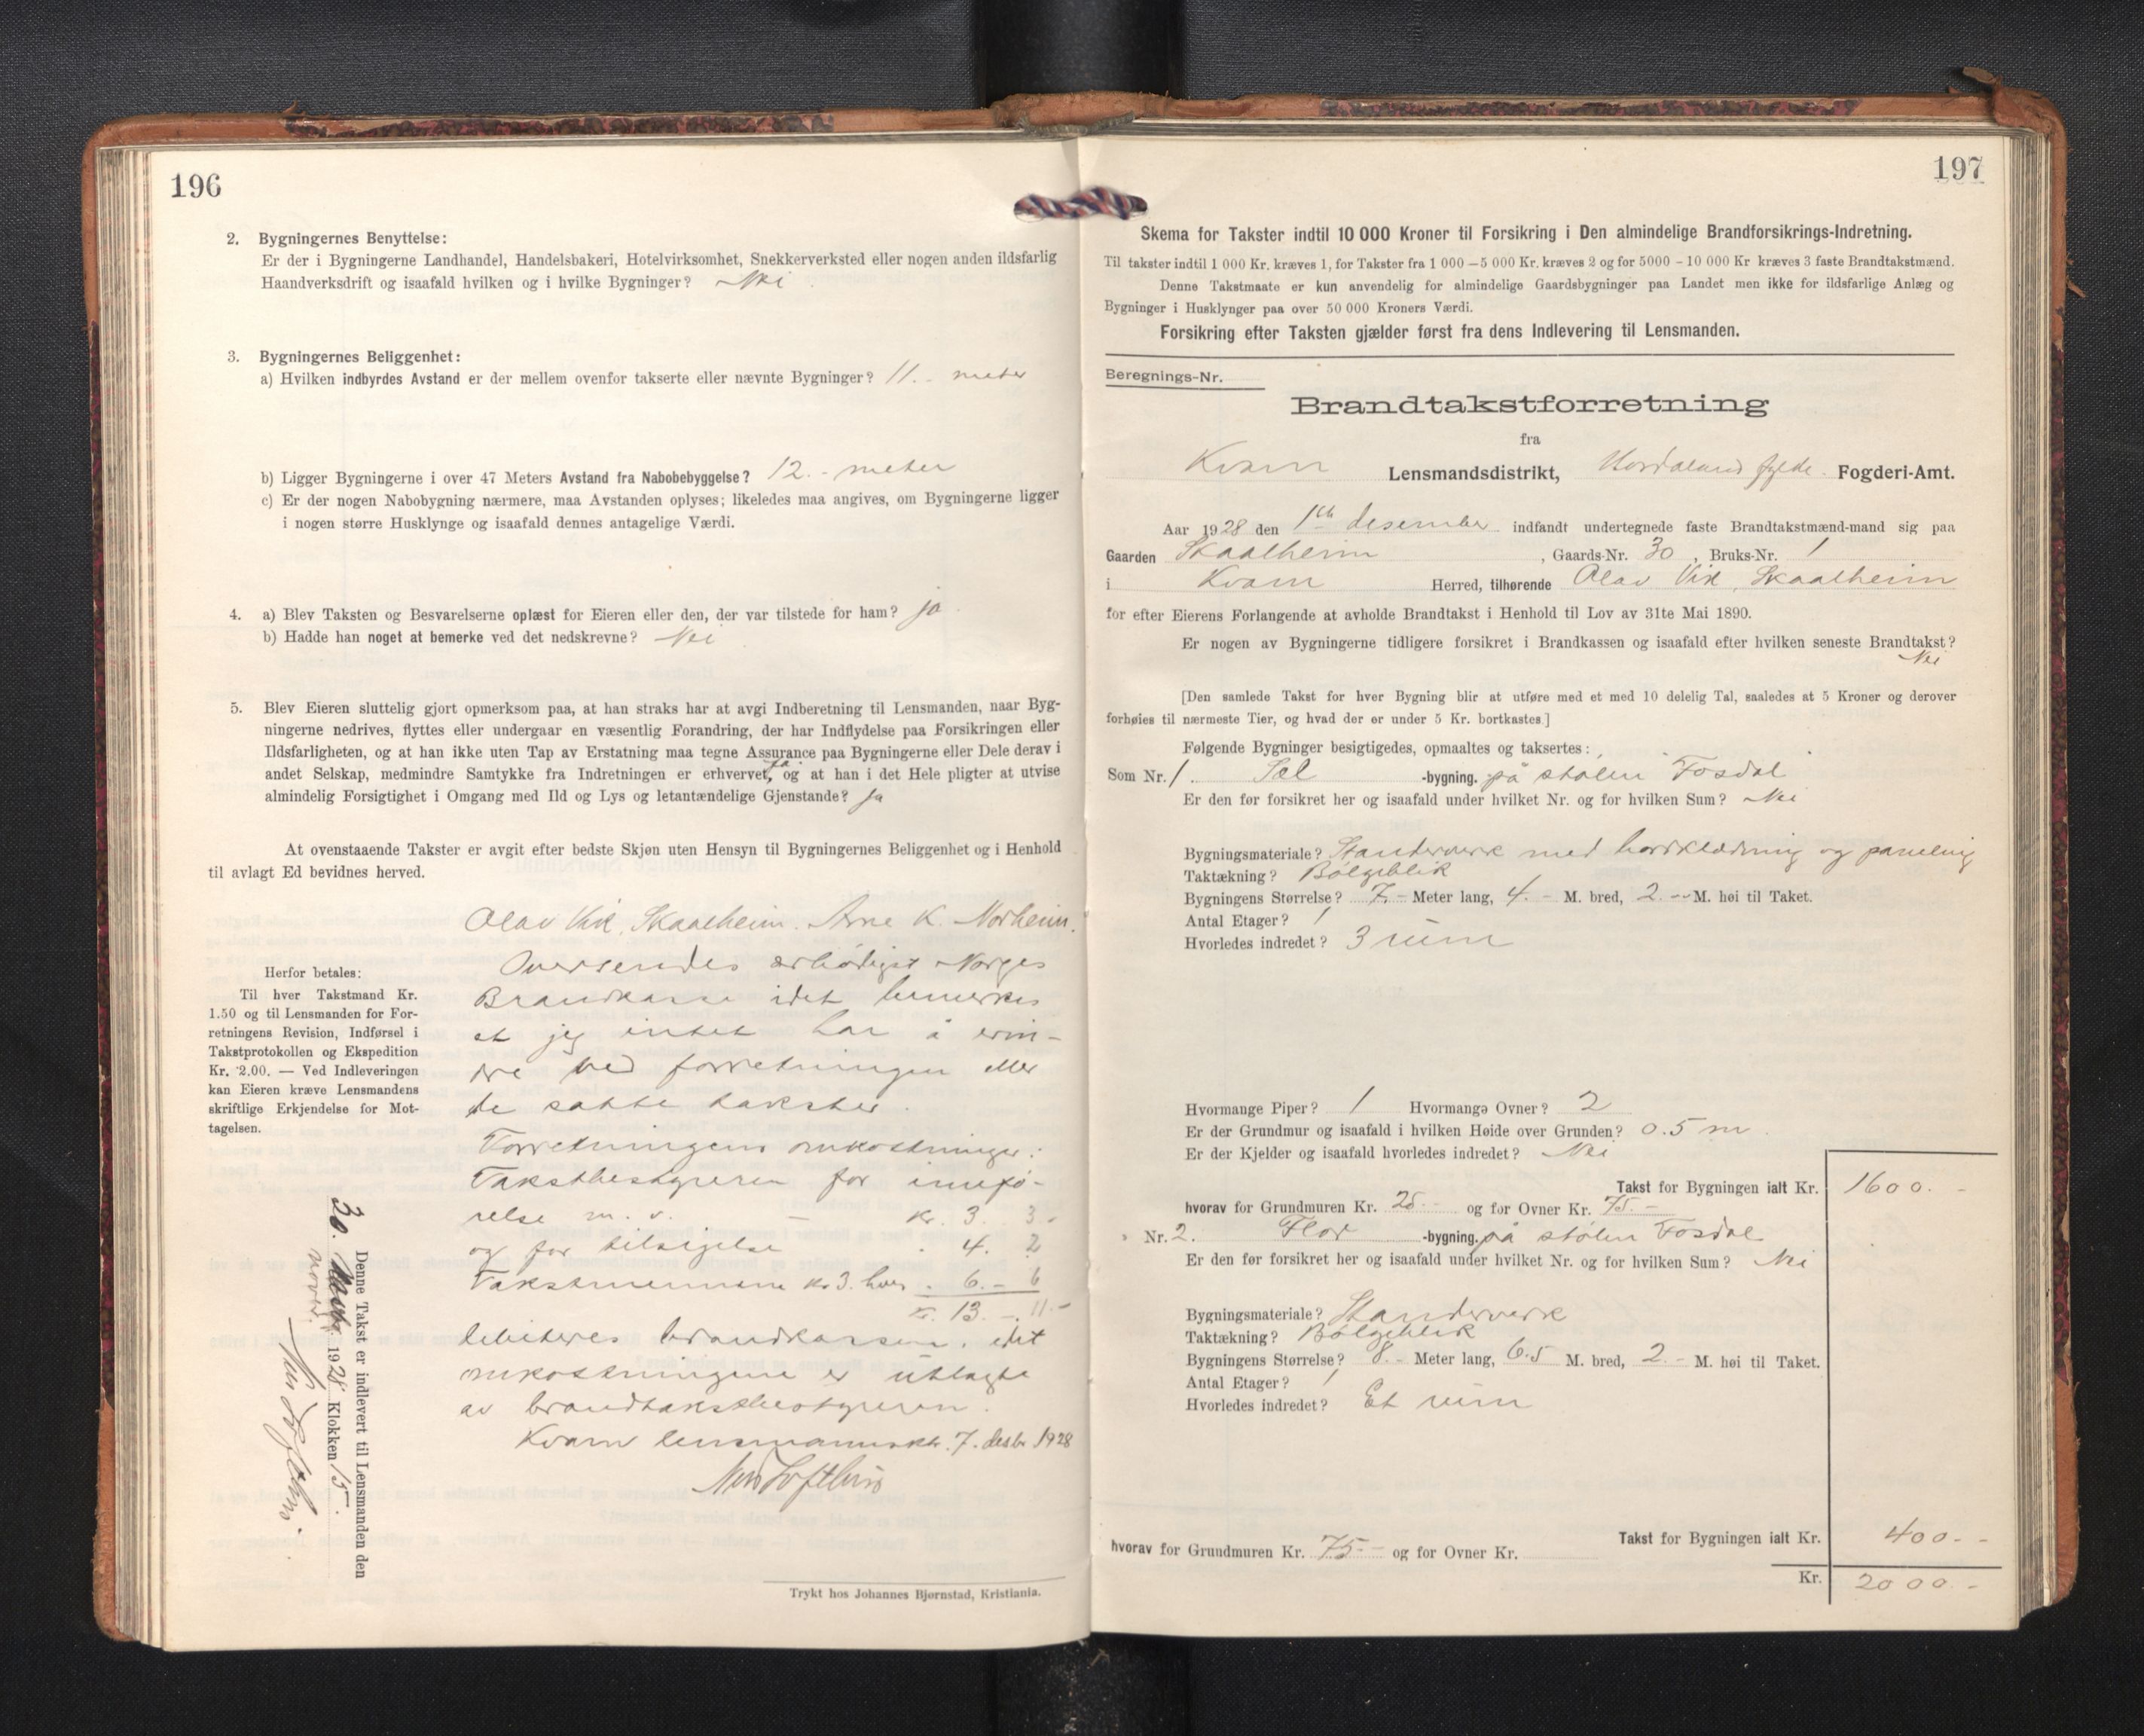 196
2. Bygningernes Benyttelse:
Er der i Bygningerne Landhandel, Handelsbakeri, Hotelvirksomhet, Snekkerverksted eller nogen anden ildsfarlig
Haandverksdrift og isaafald hvilken og i hvilke Bygninger? Nei
3. Bygningernes Beliggenhet:
a) Hvilken indbyrdes Avstand er der mellem ovenfor takserte eller nævnte Bygninger? 11.- meter
b) Ligger Bygningerne i over 47 Meters Avstand fra Nabobebyggelse? 12.- meter
c) Er der nogen Nabobygning nærmere, maa Avstanden oplyses; likeledes maa angives, om Bygningerne ligger
i nogen større Husklynge og isaafald dennes antagelige Værdi.
4. a) Blev Taksten og Besvarelserne oplæst for Eieren eller den, der var tilstede for ham? ja
b) Hadde han noget at bemerke ved det nedskrevne? Nei
5. Blev Eieren sluttelig gjort opmerksom paa, at han straks har at avgi Indberetning til Lensmanden, naar Byg-
ningerne nedrives, flyttes eller undergaar en væsentlig Forandring, der har Indflydelse paa Forsikringen eller
Ildsfarligheten, og at han ikke uten Tap av Erstatning maa tegne Assurance paa Bygningerne eller Dele derav i
andet Selskap, medmindre Samtykke fra Indretningen er erhvervet, ja og at han i det Hele pligter at utvise
almindelig Forsigtighet i Omgang med Ild og Lys og letantændelige Gjenstande? ja
At ovenstaaende Takster er avgit efter bedste Skjøn uten Hensyn til Bygningernes Beliggenhet og i Henhold
til avlagt Ed bevidnes herved.
Olav Vik, Skaalheim. Arne K. Norheim.
Oversendes ærbødigst Norges
Brandkasse idet bemerkes
at jeg intet har å erin-
dre ved forretningen eller
de satte takster.
Forretningens omkostninger:
Takstbestyreren for innfø-
relse m. v. - kr. 3. 3.-
og for tilsigelse . 4. 2
Takstmennene kr 3. hver . 6.- 6
Kr. 13.- 11.-
debiteres brandkassen, idet
omkostningene er utlagte
av brandtakstbestyreren.
Kvam lensmannskt. 7. desbr 1928
Nils Lofthus
Herfor betales:
Til hver Takstmand Kr.
1.50 og til Lensmanden for For-
retningens Revision, Indførsel i
Takstprotokollen og Ekspedition
Kr. 2.00. — Ved Indleveringen
kan Eieren kræve Lensmandens
skriftlige Erkjendelse for Mot-
tagelsen.
Denne Takst er indlevert til Lensmanden den
30. 1928 Klokken 15.
novbr.
Nils Lofthus.
Trykt hos Johannes Bjørnstad, Kristiania.
197
Skema for Takster indtil 10 000 Kroner til Forsikring i Den almindelige Brandforsikrings-Indretning.
Til takster indtil 1 000 Kr. kræves 1, for Takster fra 1 000 – 5 000 Kr. kræves 2 og for 5000 – 10 000 Kr kræves 3 faste Brandtakstmænd.
Denne Takstmaate er kun anvendelig for almindelige Gaardsbygninger paa Landet men ikke for ildsfarlige Anlæg og
Bygninger i Husklynger paa over 50 000 Kroners Værdi.
Forsikring efter Taksten gjælder først fra dens Indlevering til Lensmanden.
Beregnings-Nr.
Brandtakstforretning
fra
Kvam Lensmandsdistrikt, Hordaland fylke. Fogderi-Amt.
Aar 1928 den 1ste desember indfandt undertegnede faste Brandtakstmænd-mand sig paa
Gaarden Skaalheim, Gaards-Nr. 30, Bruks-Nr. 1
i Kvam Herred, tilhørende Olav Vik, Skaalheim
for efter Eierens Forlangende at avholde Brandtakst i Henhold til Lov av 31te Mai 1890.
Er nogen av Bygningerne tidligere forsikret i Brandkassen og isaafald efter hvilken seneste Brandtakst?
Nei
[Den samlede Takst for hver Bygning blir at utføre med et med 10 delelig Tal, saaledes at 5 Kroner og derover
forhøies til nærmeste Tier, og hvad der er under 5 Kr. bortkastes.]
Følgende Bygninger besigtigedes, opmaaltes og taksertes:
Som Nr. 1. Sel -bygning. på stølen "Fosdal"
Er den før forsikret her og isaafald under hvilket Nr. og for hvilken Sum? Nei
Bygningsmateriale? Standerverk med bordklædning og paneling
Taktækning? Bølgeblik
Bygningens Størrelse? 7.- Meter lang, 4.- M. bred, 2.- M. høi til Taket.
Antal Etager? 1
Hvorledes indredet? 3 rum
Hvormange Piper? 1 Hvormange Ovner? 2
Er der Grundmur og isaafald i hvilken Høide over Grunden? 0.5 m.
Er der Kjelder og isaafald hvorledes indredet? Nei
Takst for Bygningen ialt Kr. 1600.-
hvorav for Grundmuren Kr. 25.- og for Ovner Kr. 75.-
Nr. 2. Flor -bygning. på stølen Fosdal
Er den før forsikret her og isaafald under hvilket Nr. og for hvilken Sum? Nei
Bygningsmateriale? Standerverk
Taktækning? Bølgeblik
Bygningens Størrelse? 8.- Meter lang, 6.5 M. bred, 2.- M. høi til Taket.
Antal Etager? 1
Hvorledes indredet? Et rum
Takst for Bygningen ialt Kr. 400.-
hvorav for Grundmuren Kr. 75.- og for Ovner Kr.
Kr. 2000.-